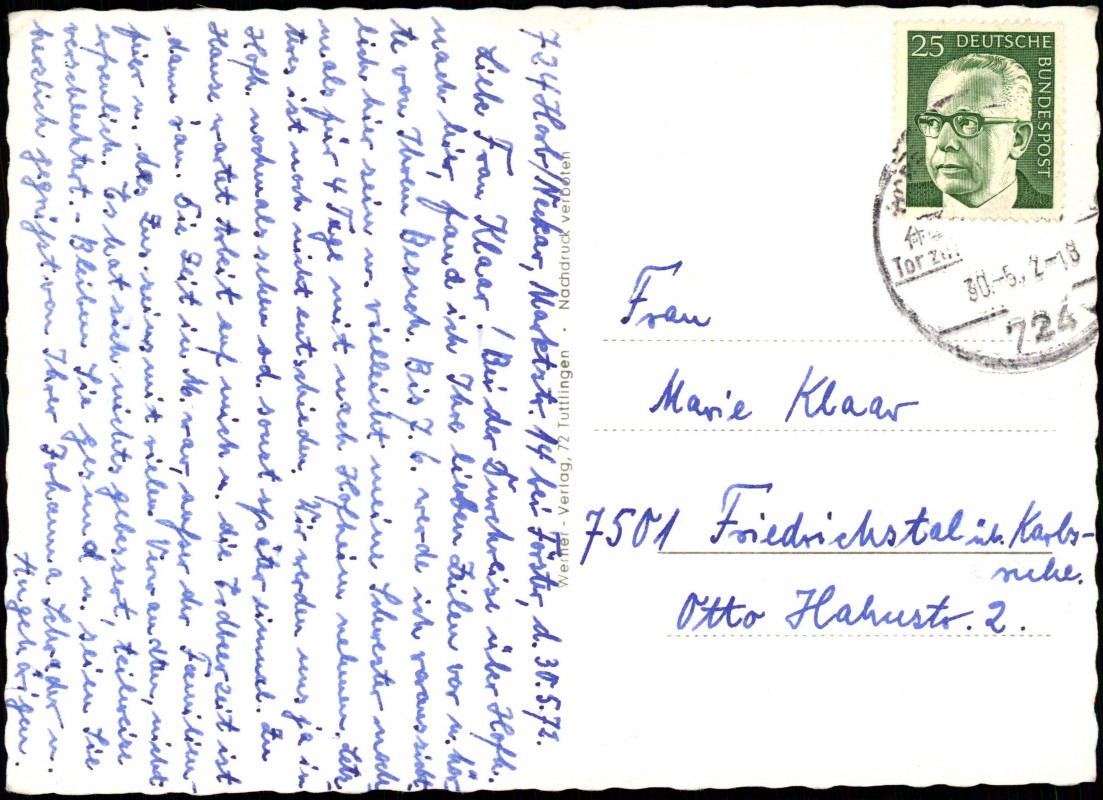 724 Horb/Neckar, Marktstr. 14 bei Förster, d. 30.5.72.
Liebe Frau Klaar! Bei der Durchreise über Hofh.
nach hier, fand ich Ihre lieben Zeilen vor u. hör
te von Ihrem Besuch. Bis 7.6. werde ich voraussicht
lich hier sein u. vielleicht meine Schwester noch
mals für 4 Tage mit nach Hofheim nehmen. Letz
teres ist noch nicht entschieden. Wir werden uns ja in
Hofh. nochmals sehen od. sonst später einmal. Zu
Hause wartet Arbeit auf mich u. die Erdbeerzeit ist
dann ran. Die Zeit in M. war, außer der Familien-
feier u. des Zus.seins mit vielen Verwandten, nicht
erfreulich. Es hat sich nichts gebessert, teilweise
verschlechtert. - Bleiben Sie gesund u. seien Sie
herzlich gegrüßt von Ihrer Johanna Schrader u.
Angehörigen.
Werner - Verlag, 72 Tuttlingen • Nachdruck verboten
25 DEUTSCHE
BUNDESPOST
Tor zum
30.-5.72-18
724
Frau
Marie Klaar
7501 Friedrichstal üb. Karls-
ruhe.
Otto Hahnstr. 2.